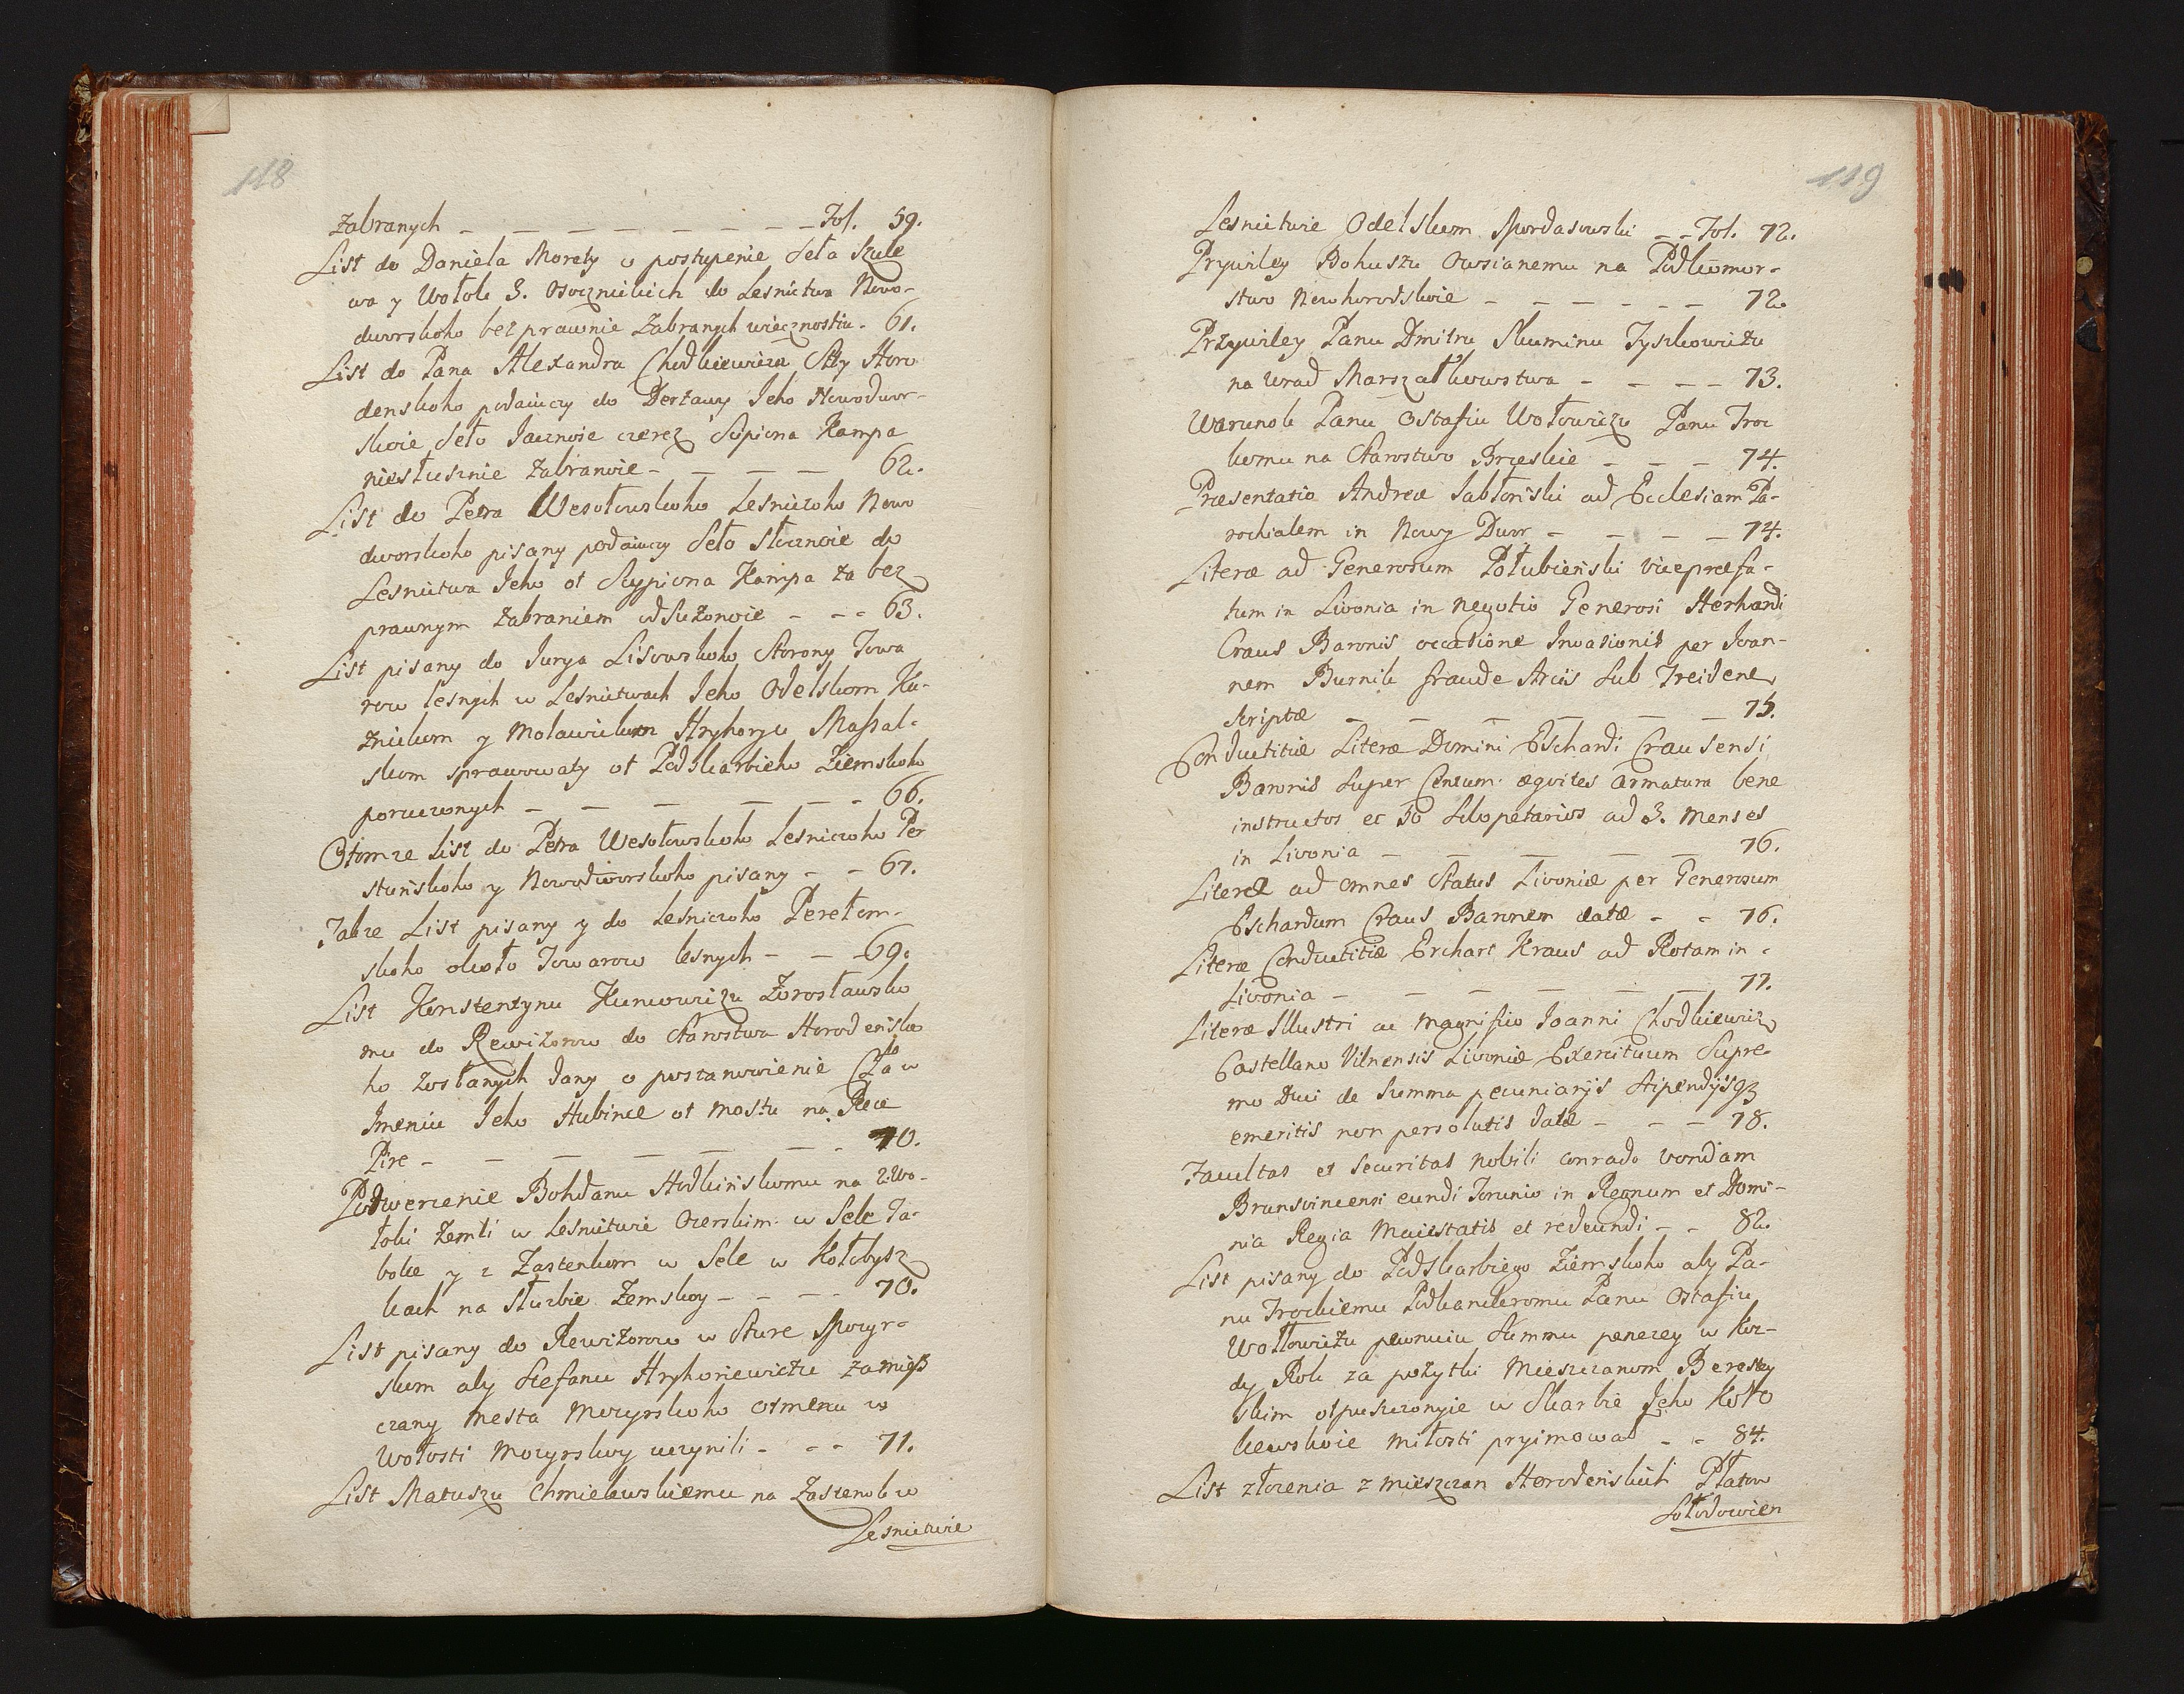 118
zabranych - - - - - - - - Fol. 59.
List do Daniela Morety o postupenie Seła Szule
wa y Wołok 3. Osocznickich do Lesnictwa Nowo-
dworskoho bezprawnie zabranych wiecznostiu. 61.
List do Pana Alexandra Chodkiewicza Sty Horo
denskoho podaiuczy do Derżawy Jeho Nowodwor-
skoie Seło Jacznoie czerez Scipiona Kampa
niesłusznie zabranoie - - - - 62.
List do Petra Wesołowskoho Lesniczoho Nowo
dworskoho pisany podaiuczy Seło Słocznoie do
Lesnictwa Jeho ot Scypiona Kampa za bez
prawnym zabraniem odsużonoie - - - 63.
List pisany do Jurya Lisowskoho Storony Towa
row lesnych w Lesnictwach Jeho Odelskom Ku-
znickom y Molawickom Hryhoryu Massal-
skom sprawowaty ot Podskarbieho Ziemskoho
poruczonych - - - - - - 66.
Otomze List do Petra Wesołowskoho Lesniczoho Per
stuńskoho y Nowodworskoho pisany - - 67.
Takze List pisany y do Lesniczoho Perełom-
skoho około Towarow lesnych - - - 69.
List Konstentynu Kuncowiczu Zorosławsko
mu do Rewizorow do Starostwa Horodeńsko
ho zosłanych dany o postanowienie Cła w
Imeniu Jeho Hubince ot mostu na Rece
Pire - - - - - - - 70.
Podwerzenie Bohdanu Hodkińskomu na 2. Wo-
łoki Zemli w Lesnictwie Ozerskim w Sele Ja-
boke y z Zastenkom w Sele w Kołobysz
kach na słuzbie Zemskoy - - - - 70.
List pisany do Rewizorow w Sture Mozyr-
skom aby Stefanu Hryhoriewiczu zamięs
czany mesta Mozyrskoho otmenu w
Wołosti Mozyrskoy uczynili - - - 71.
List Matuszu Chmielewskiemu na Zastenok w
Lesnictwie
119
Lesnictwie Odelskom Mordasowski - - Fol. 72.
Prywiley Bohuszu Owsianemu na Podkomor-
stwo Nowhorodskoie - - - - - - 72.
Przywiley Panu Dmitru Skuminu Tyszkowiczu
na Urad Marszałkowstwa - - - - 73.
Warunok Panu Ostafiu Wołowiczu Panu Troc
komu na Starostwo Brzeskie - - - 74.
Præsentatio Andreæ Jabłoński ad Ecclesiam Pa-
rochialem in Nowy Dwor - - - - - 74.
Literæ ad Generosum Połubieński Vicepræfa-
tum in Livonia in negotio Generosi Herhardi
Craus Baronis occasione Invasionis per Joan-
nem Burnik fraude Arcis sub Treidene
scriptæ - - - - - - 75.
Conductitiæ Literæ Domini Eschardi Crausensi
Baronis super Centum æqvites armatura bene
instructos et 50 Sclopetarios ad 3. Menses
in Livonia - - - - - 76.
Literæ ad omnes Status Livoniæ per Generosum
Eschardum Craus Baronem datæ - - 76.
Literæ Conductitiæ Erchart Kraus ad Rotam in
Livonia - - - - - - 77.
Literæ Illustri ac Magnifico Joanni Chodkiewicz
Castellano Vilnensis Livoniæ Exercituum Supre-
mo Duci de Summa pecuniarijs stipendijsqz
emeritis non persolutis datæ - - - 78.
Facultas et Securitas Nobili Conrado Vondam
Brunsvincensi eundi Torunio in Regnum et Domi-
nia Regia Maiestatis et redeundi - - 82.
List pisany do Podskarbiego Ziemskoho aby Pa-
nu Trockiemu Podkancleromu Panu Ostafiu
Wołłowiczu pewnuiu summu penezey w koz-
dy Rok za pożytki Mieszczanom Berestey
skim otpuszczonyie w Skarbie Jeho Koro
lewskoie miłosti pryimował - - 84.
List złozenia z mieszczan Horodeńskich Płatow
Sołodowien